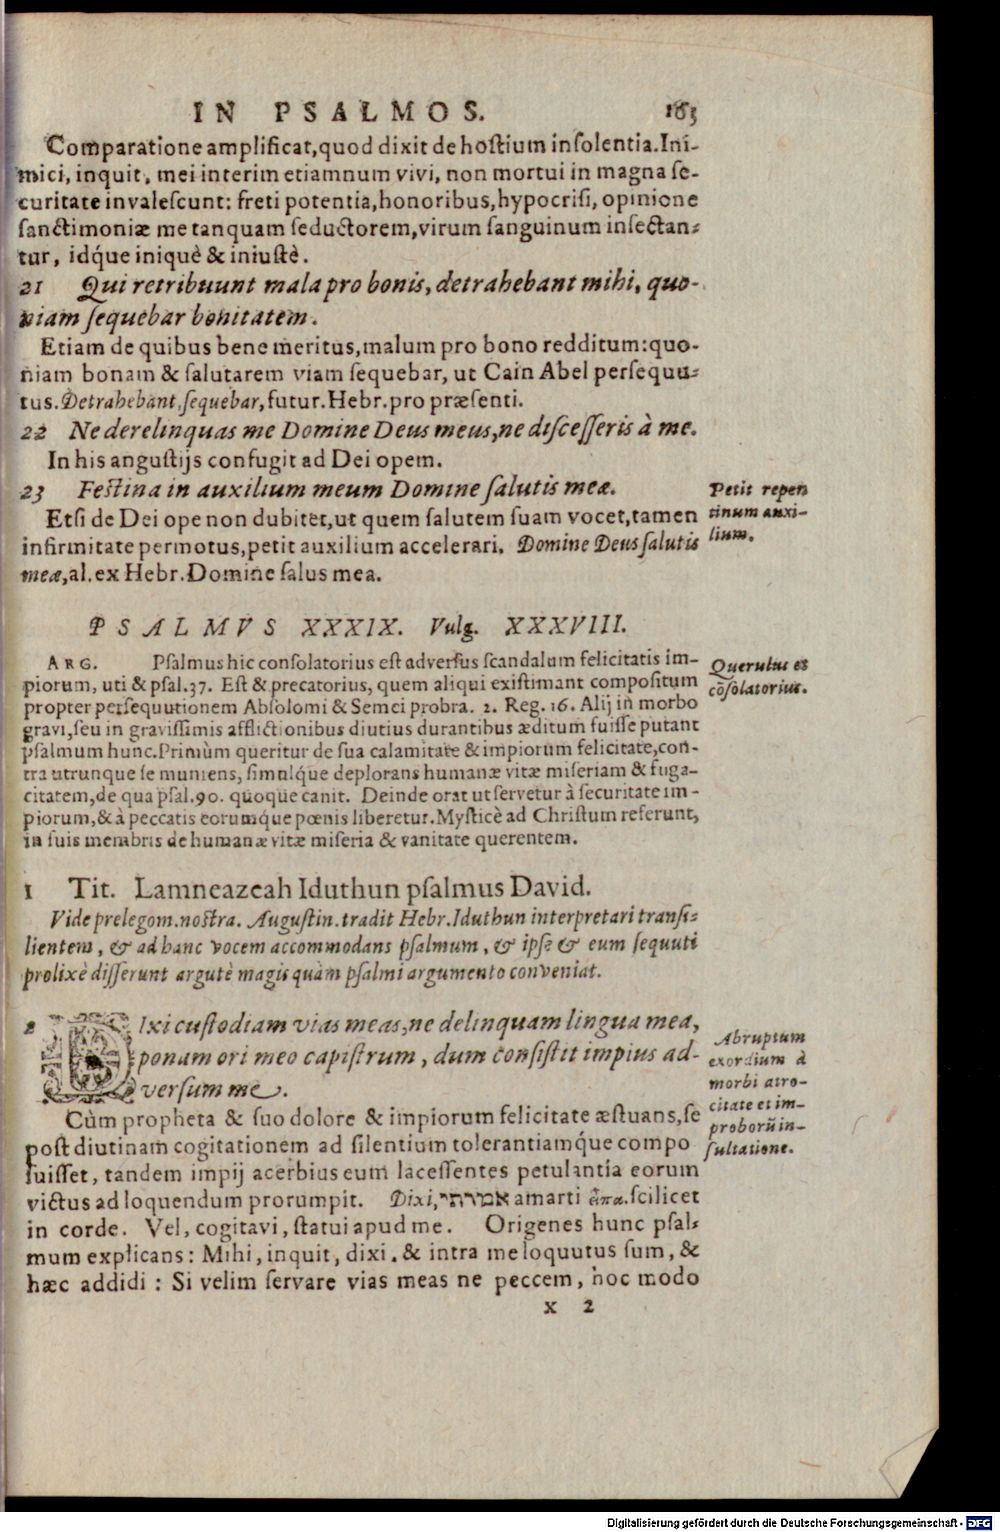 IN PSALMOS. 163
Comparatione amplificat, quod dixit de hostium insolentia. Ini-
mici, inquit, mei interim etiamnum vivi, non mortui in magna se-
curitate invalescunt: freti potentia, honoribus, hypocrisi, opinione
sanctimoniæ me tanquam seductorem, virum sanguinum insectan-
tur, idq́ue iniquè & iniustè.
21 Qui retribuunt mala pro bonis, detrahebant mihi, quo-
niam sequebar bonitatem.
Etiam de quibus bene meritus, malum pro bono redditum: quo-
niam bonam & salutarem viam sequebar, ut Cain Abel persequu-
tus. Detrahebant, sequebar, futur. Hebr. pro præsenti.
22 Ne derelinquas me Domine Deus meus, ne discesseris à me.
In his angustijs confugit ad Dei opem.
23 Festina in auxilium meum Domine salutis meæ.
Petit repen
tinum auxi-
lium.
Etsi de Dei ope non dubitet, ut quem salutem suam vocet, tamen
infirmitate permotus, petit auxilium accelerari. Domine Deus salutis
meæ, al. ex Hebr. Domine salus mea.
PSALMVS XXXIX. Vulg. XXXVIII.
Querulus et
cōsolatorius.
ARG. Psalmus hic consolatorius est adversus scandalum felicitatis im-
piorum, uti & psal. 37. Est & precatorius, quem aliqui existimant compositum
propter persequutionem Absolomi & Semei probra. 2. Reg. 16. Alij in morbo
gravi, seu in gravissimis afflictionibus diutius durantibus æditum fuisse putant
psalmum hunc. Primùm queritur de sua calamitate & impiorum felicitate, con-
tra utrunque se muniens, simulq́ue deplorans humanæ vitæ miseriam & fuga-
citatem, de qua psal. 90. quoque canit. Deinde orat ut servetur à securitate im-
piorum, & à peccatis eorumque pœnis liberetur. Mysticè ad Christum referunt,
in suis membris de humanæ vitæ miseria & vanitate querentem.
1 Tit. Lamneazeah Iduthun psalmus David.
Vide prelegom. nostra. Augustin. tradit Hebr. Iduthun interpretari transi-
lientem, & ad hanc vocem accommodans psalmum, & ipse & eum sequuti
prolixè disserunt argutè magis quàm psalmi argumento conveniat.
2 DIxi custodiam vias meas, ne delinquam lingua mea,
ponam ori meo capistrum, dum consistit impius ad-
versum me.
Abruptum
exordium à
morbi atro-
citate et im-
proborū in-
sultatione.
Cùm propheta & suo dolore & impiorum felicitate æstuans, se
post diutinam cogitationem ad silentium tolerantiamq́ue compo
suisset, tandem impij acerbius eum lacessentes petulantia eorum
victus ad loquendum prorumpit. Dixi, אמרתי amarti εἶπα. scilicet
in corde. Vel, cogitavi, statui apud me. Origenes hunc psal-
mum explicans: Mihi, inquit, dixi. & intra me loquutus sum, &
hæc addidi: Si velim servare vias meas ne peccem, hoc modo
x 2
Digitalisierung gefördert durch die Deutsche Forschungsgemeinschaft - DFG